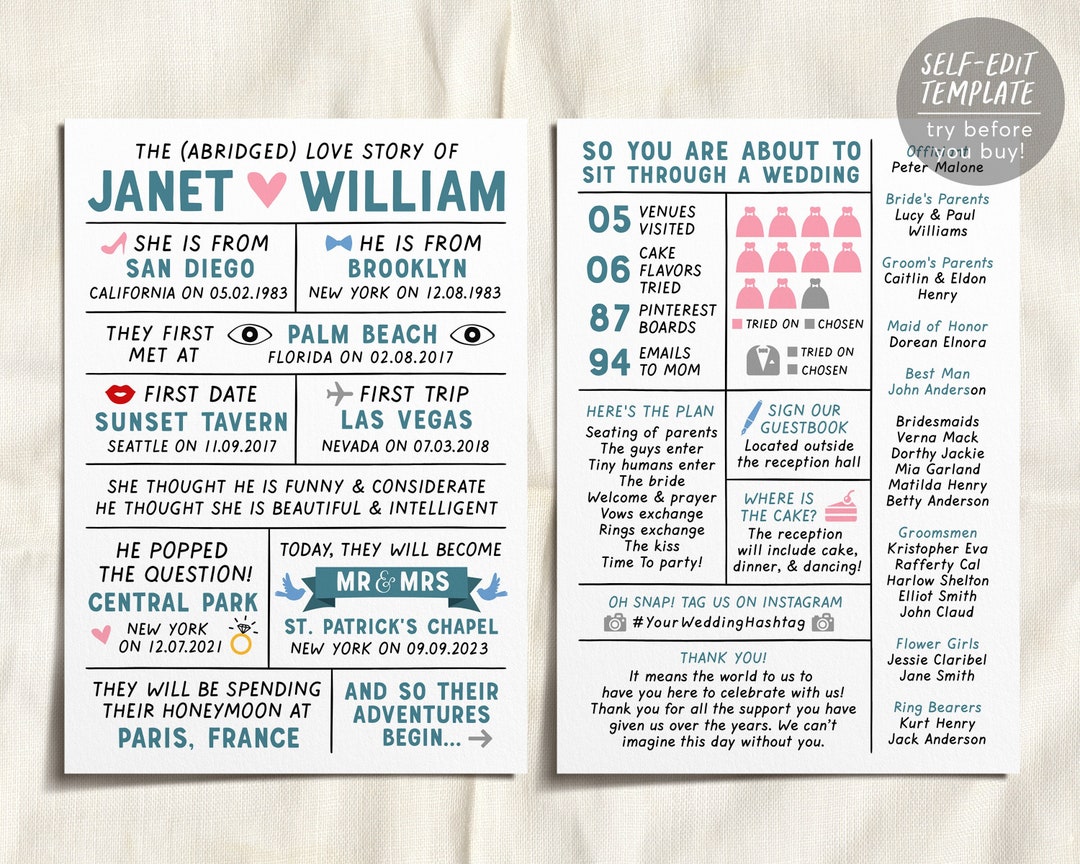 SELF-EDIT
TEMPLATE
try before
you buy!
THE (ABRIDGED) LOVE STORY OF
JANET WILLIAM
SHE IS FROM
SAN DIEGO
CALIFORNIA ON 05.02.1983
HE IS FROM
BROOKLYN
NEW YORK ON 12.08.1983
THEY FIRST
MET AT
PALM BEACH
FLORIDA ON 02.08.2017
FIRST DATE
SUNSET TAVERN
SEATTLE ON 11.09.2017
FIRST TRIP
LAS VEGAS
NEVADA ON 07.03.2018
SHE THOUGHT HE IS FUNNY & CONSIDERATE
HE THOUGHT SHE IS BEAUTIFUL & INTELLIGENT
HE POPPED
THE QUESTION!
CENTRAL PARK
NEW YORK
ON 12.07.2021
TODAY, THEY WILL BECOME
MR & MRS
ST. PATRICK'S CHAPEL
NEW YORK ON 09.09.2023
THEY WILL BE SPENDING
THEIR HONEYMOON AT
PARIS, FRANCE
AND SO THEIR
ADVENTURES
BEGIN...
SO YOU ARE ABOUT TO
SIT THROUGH A WEDDING
05 VENUES
VISITED
06 CAKE
FLAVORS
TRIED
87 PINTEREST
BOARDS
94 EMAILS
TO MOM
TRIED ON CHOSEN
TRIED ON
CHOSEN
HERE'S THE PLAN
Seating of parents
The guys enter
Tiny humans enter
The bride
Welcome & prayer
Vows exchange
Rings exchange
The kiss
Time To party!
SIGN OUR
GUESTBOOK
Located outside
the reception hall
WHERE IS
THE CAKE?
The reception
will include cake,
dinner, & dancing!
OH SNAP! TAG US ON INSTAGRAM
#YourWeddingHashtag
THANK YOU!
It means the world to us to
have you here to celebrate with us!
Thank you for all the support you have
given us over the years. We can't
imagine this day without you.
Officiant
Peter Malone
Bride's Parents
Lucy & Paul
Williams
Groom's Parents
Caitlin & Eldon
Henry
Maid of Honor
Dorean Elnora
Best Man
John Anderson
Bridesmaids
Verna Mack
Dorthy Jackie
Mia Garland
Matilda Henry
Betty Anderson
Groomsmen
Kristopher Eva
Rafferty Cal
Harlow Shelton
Elliot Smith
John Claud
Flower Girls
Jessie Claribel
Jane Smith
Ring Bearers
Kurt Henry
Jack Anderson